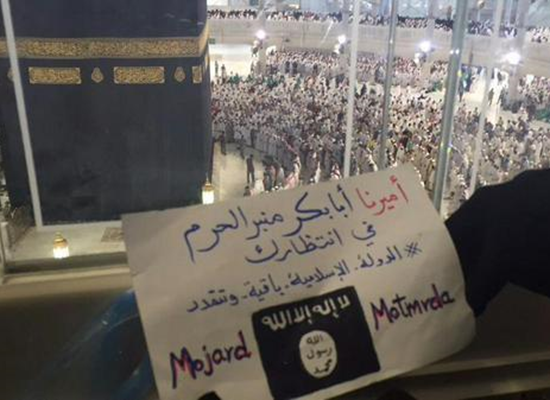 أميرنا أبابكر منبر الحرم
في انتظارك
* الدولة.الإسلامية.باقية.وتتمدد
لا إله إلا الله
الله
رسول
محمد
Mojard
Motmrda